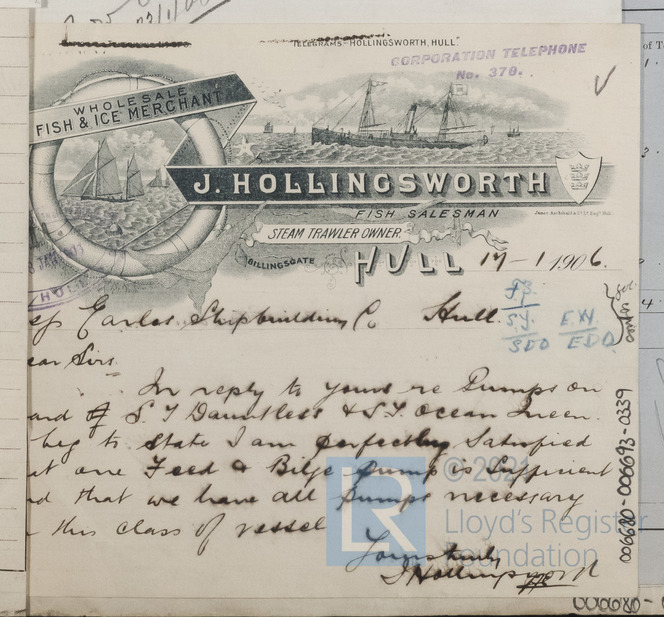 TELEGRAMS-"HOLLINGSWORTH, HULL."
CORPORATION TELEPHONE
No. 370.
WHOLESALE
FISH & ICE MERCHANT
J. HOLLINGSWORTH
FISH SALESMAN
STEAM TRAWLER OWNER
BILLINGSGATE
HULL 17-1 1906.
Earles Shipbuilding Co Hull.
ear Sirs
In reply to yours re Pumps on
ard of S.T Dauntless & S.T. Ocean Queen.
beg to state I am perfectly Satisfied
at one Feed & Bilge pump is Sufficient
nd that we have all pumps necessary
this class of vessel
Yours truly
J Hollingsworth
SDO EDO
006680-006693-0339
© 2021
Lloyd's Register
Foundation
LR